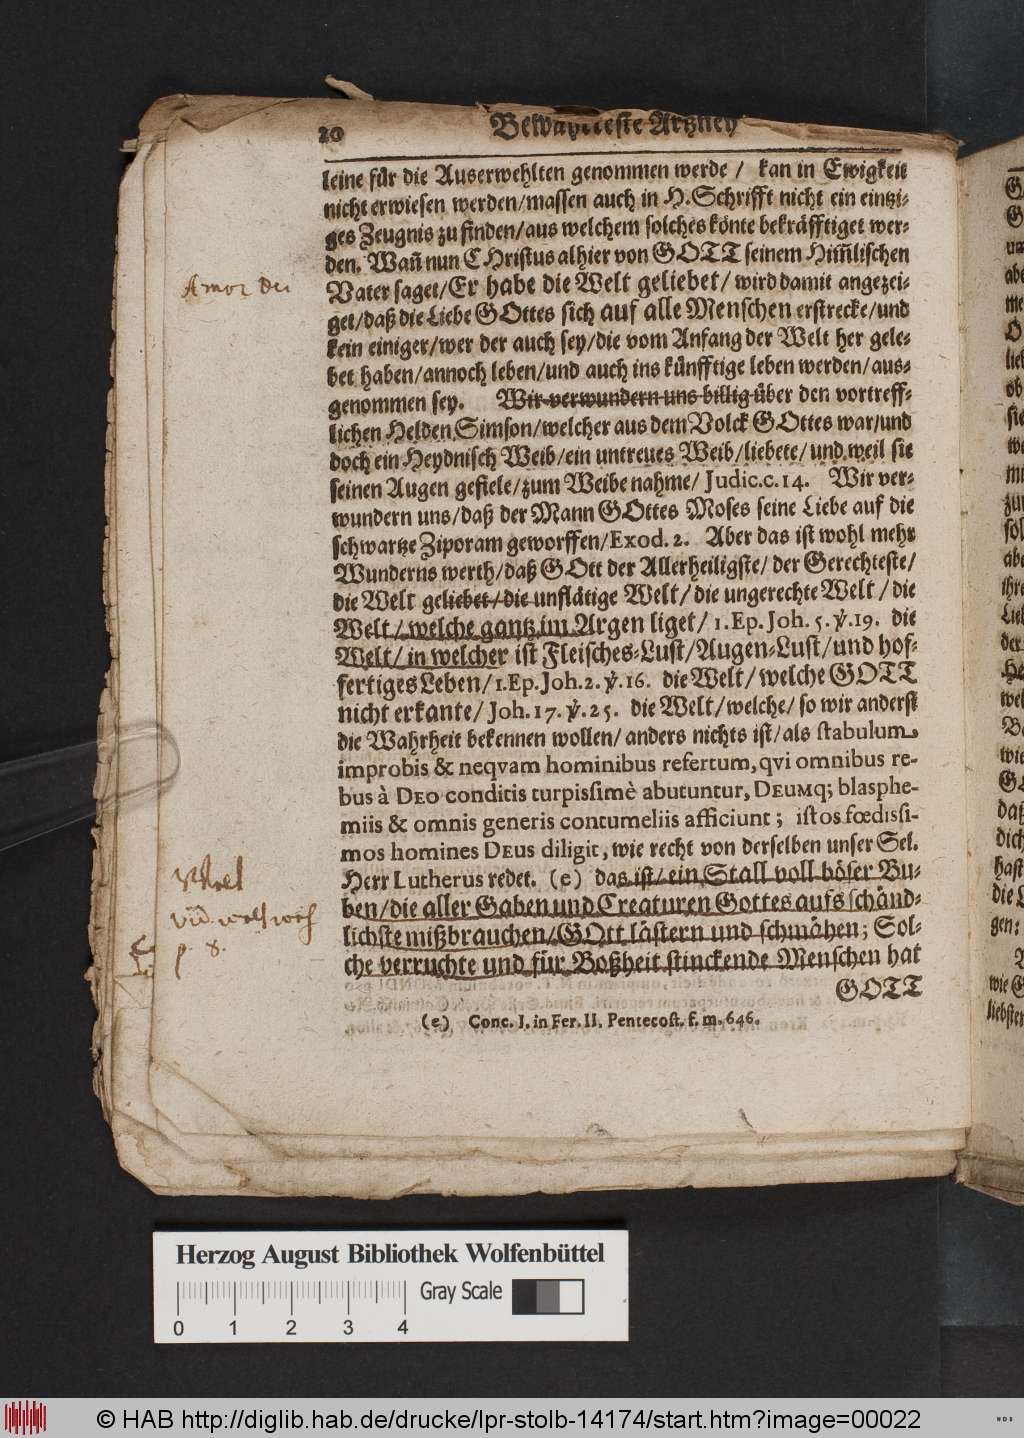 20
Bewährteste Artzney
leine für die Auserwehlten genommen werde / kan in Ewigkeit
nicht erwiesen werden/massen auch in H. Schrifft nicht ein eintzi-
ges Zeugnis zu finden/aus welchem solches könte bekräfftiget wer-
den. Wañ nun CHristus alhier von GOTT seinem Him̃lischen
Vater saget/Er habe die Welt geliebet/ wird damit angezei-
get/daß die Liebe GOttes sich auf alle Menschen erstrecke/und
kein einiger/wer der auch sey/die vom Anfang der Welt her gele-
bet haben/annoch leben/und auch ins künfftige leben werden/aus-
genommen sey. Wir verwundern uns billig über den vortreff-
lichen Helden Simson/welcher aus dem Volck GOttes war/und
doch ein Heydnisch Weib/ein untreues Weib/liebete/ und weil sie
seinen Augen gefiele/zum Weibe nahme/ Judic.c.14. Wir ver-
wundern uns/daß der Mann GOttes Moses seine Liebe auf die
schwartze Ziporam geworffen/Exod. 2. Aber das ist wohl mehr
Wunderns werth/daß GOtt der Allerheiligste/ der Gerechteste/
die Welt geliebet/die unflätige Welt/die ungerechte Welt/die
Welt/welche gantz im Argen liget/ 1. Ep. Joh. 5. ℣. 19. die
Welt/in welcher ist Fleisches-Lust/Augen-Lust/und hof-
fertiges Leben/1. Ep. Joh. 2. ℣. 16. die Welt/welche GOTT
nicht erkante/Joh. 17. ℣. 25. die Welt/welche/so wir anderst
die Wahrheit bekennen wollen/anders nichts ist/als stabulum
improbis & neqvam hominibus refertum, qvi omnibus re-
bus à DEO conditis turpissimè abutuntur, DEUMq; blasphe-
miis & omnis generis contumeliis afficiunt; istos fœdissi-
mos homines DEUS diligit, wie recht von derselben unser Sel.
Herr Lutherus redet. (e) das ist/ein Stall voll böser Bu-
ben/die aller Gaben und Creaturen Gottes aufs schänd-
lichste mißbrauchen/GOtt lästern und schmähen; Sol-
che verruchte und für Boßheit stinckende Menschen hat
GOTT
(e) Conc. I. in Fer. II. Pentecost. f. m. 646.
Amor Dei
p. 8.
Herzog August Bibliothek Wolfenbüttel
Gray Scale
0 1 2 3 4
© HAB http://diglib.hab.de/drucke/lpr-stolb-14174/start.htm?image=00022